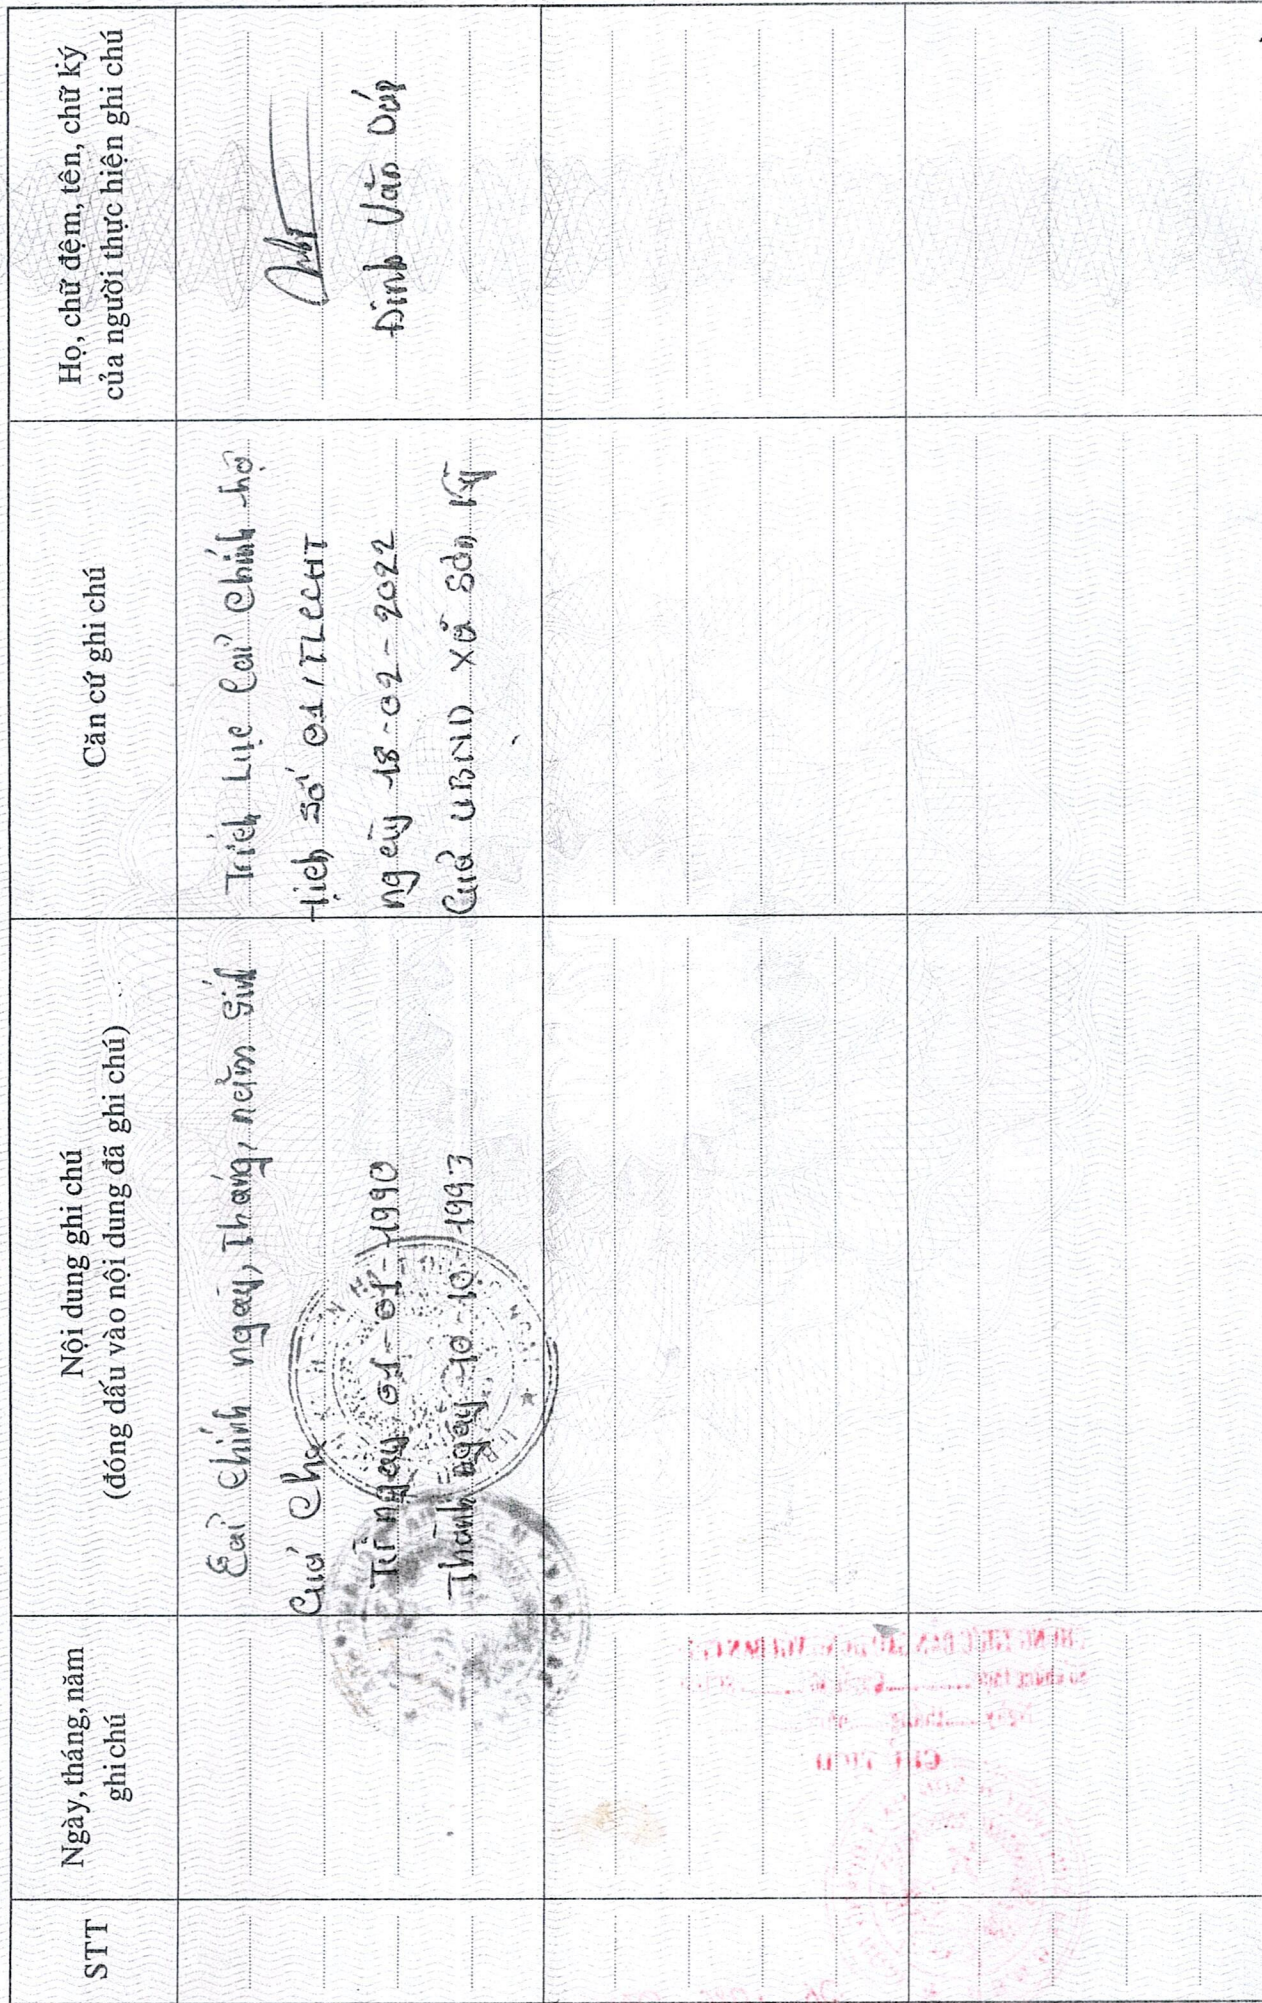 STT
Ngày, tháng, năm
ghi chú
Nội dung ghi chú
(đóng dấu vào nội dung đã ghi chú)
Căn cứ ghi chú
Họ, chữ đệm, tên, chữ ký
của người thực hiện ghi chú
Cải chính ngày, tháng, năm sinh
Của Cha
Từ ngày 01-01-1990
Thành ngày 10-10-1993
Trích Lục Cải Chính hộ
tịch số 01/TLCCHT
ngày 18-02-2022
Của UBND xã Sơn Kỳ
Đinh Văn Dúp